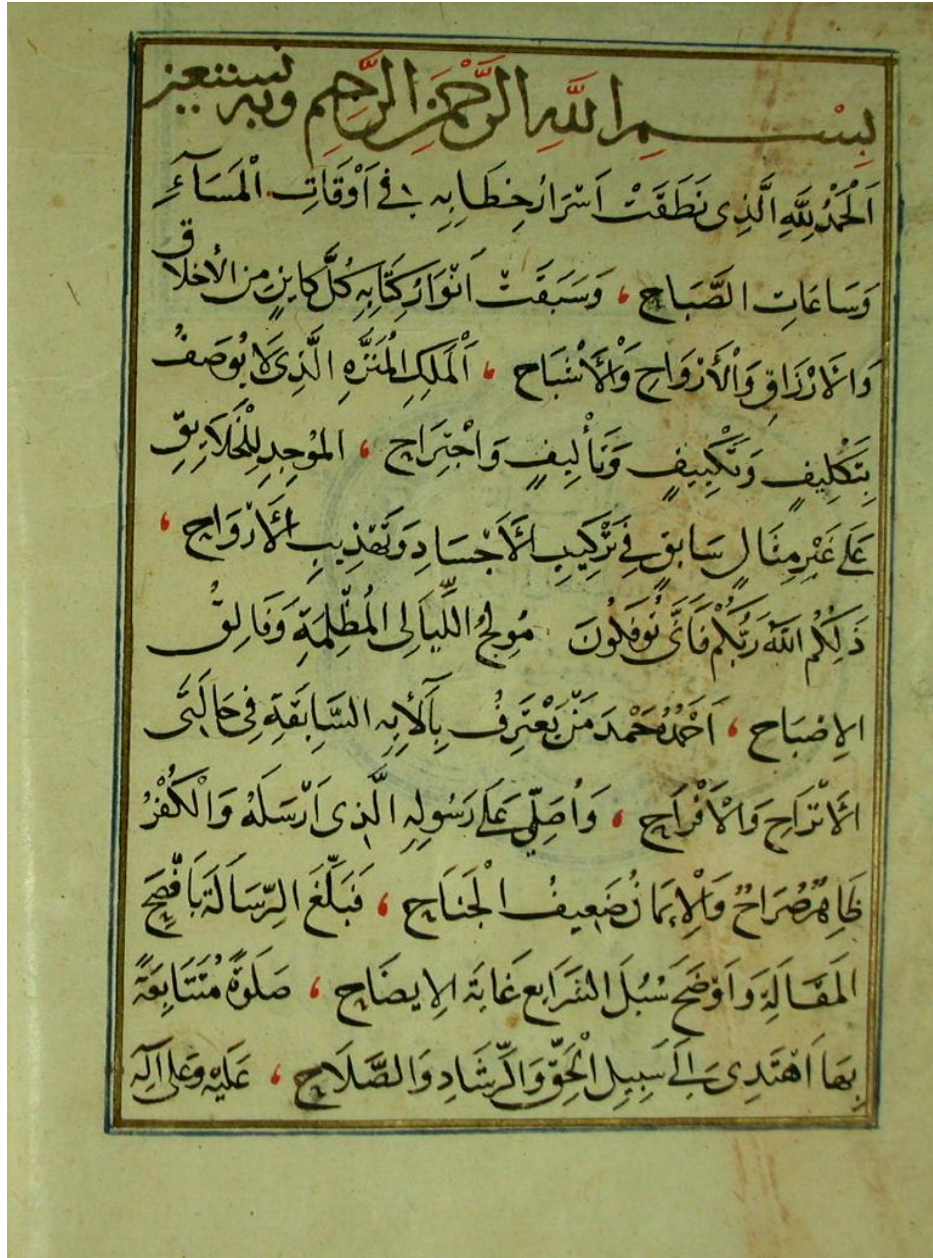 بِسْمِ اللَّهِ الرَّحْمَنِ الرَّحِيمِ وبه نستعين
اَلْحَمْدُ لِلَّهِ الَّذِى نَطَقَتْ اَسْرَارُ خِطَابِهِ فِى اَوْقَاتِ الْمَسَآءِ
وَسَاعَاتِ الصَّبَاحِ ، وَسَبَقَتْ اَنْوَارُ كِتَابِهِ كُلَّ كَايِنٍ من الأخلاق
وَالاَرْزَاقِ وَالْأَرْوَاحِ وَالْأَشْبَاحِ ، اَلْمَلِكِ الْمُنَزَّهِ الَّذِى لَا يُوصَفُ
بِتَكْلِيفٍ وَتَكْيِيفٍ وَتَأْلِيفٍ وَاجْتِرَاحٍ ، الموُجِدِ لِلْخَلَايِقِ
عَلَى غَيْرِ مِثَالٍ سَابِقٍ فِى تَرْكِيبِ الْأَجْسَادِ وَتَهْذِيبِ الْأَرْوَاحِ ،
ذَلِكُمُ اللَّهُ رَبُّكُمْ فَاَنَّى تُوفَكُونَ مُولِجُ اللَّيَالِى الْمُظْلِمَةِ وَفَالِقُ
الاِصْبَاحِ ، اَحْمَدُهُ حَمْدَ مَنْ يَعْتَرِفُ بِآلَايِهِ السَّابِقَةِ فِى حَالَتَىِ
الْأَتْرَاحِ وَالْأَفْرَاحِ ، وَاُصَلِّى عَلَى رَسُولِهِ الَّذِى اَرْسَلَهُ وَالْكُفْرُ
ظَاهِرٌ صُرَاحٌ وَالْاِيمَانُ ضَعِيفُ الْجَنَاحِ ، فَبَلَّغَ الرِّسَالَةَ بِاَفْصَحِ
الْمَقَالَةِ وَاَوْضَحَ سُبُلَ الشَّرَايِعِ غَايَةَ الاِيضَاحِ ، صَلَوةً مُتَتَابِعَةً
بِهَا اَهْتَدِى اِلَى سَبِيلِ الْحَقِّ وَالرَّشَادِ وَالصَّلَاحِ ، عَلَيْهِ وَعَلَى آلِهِ